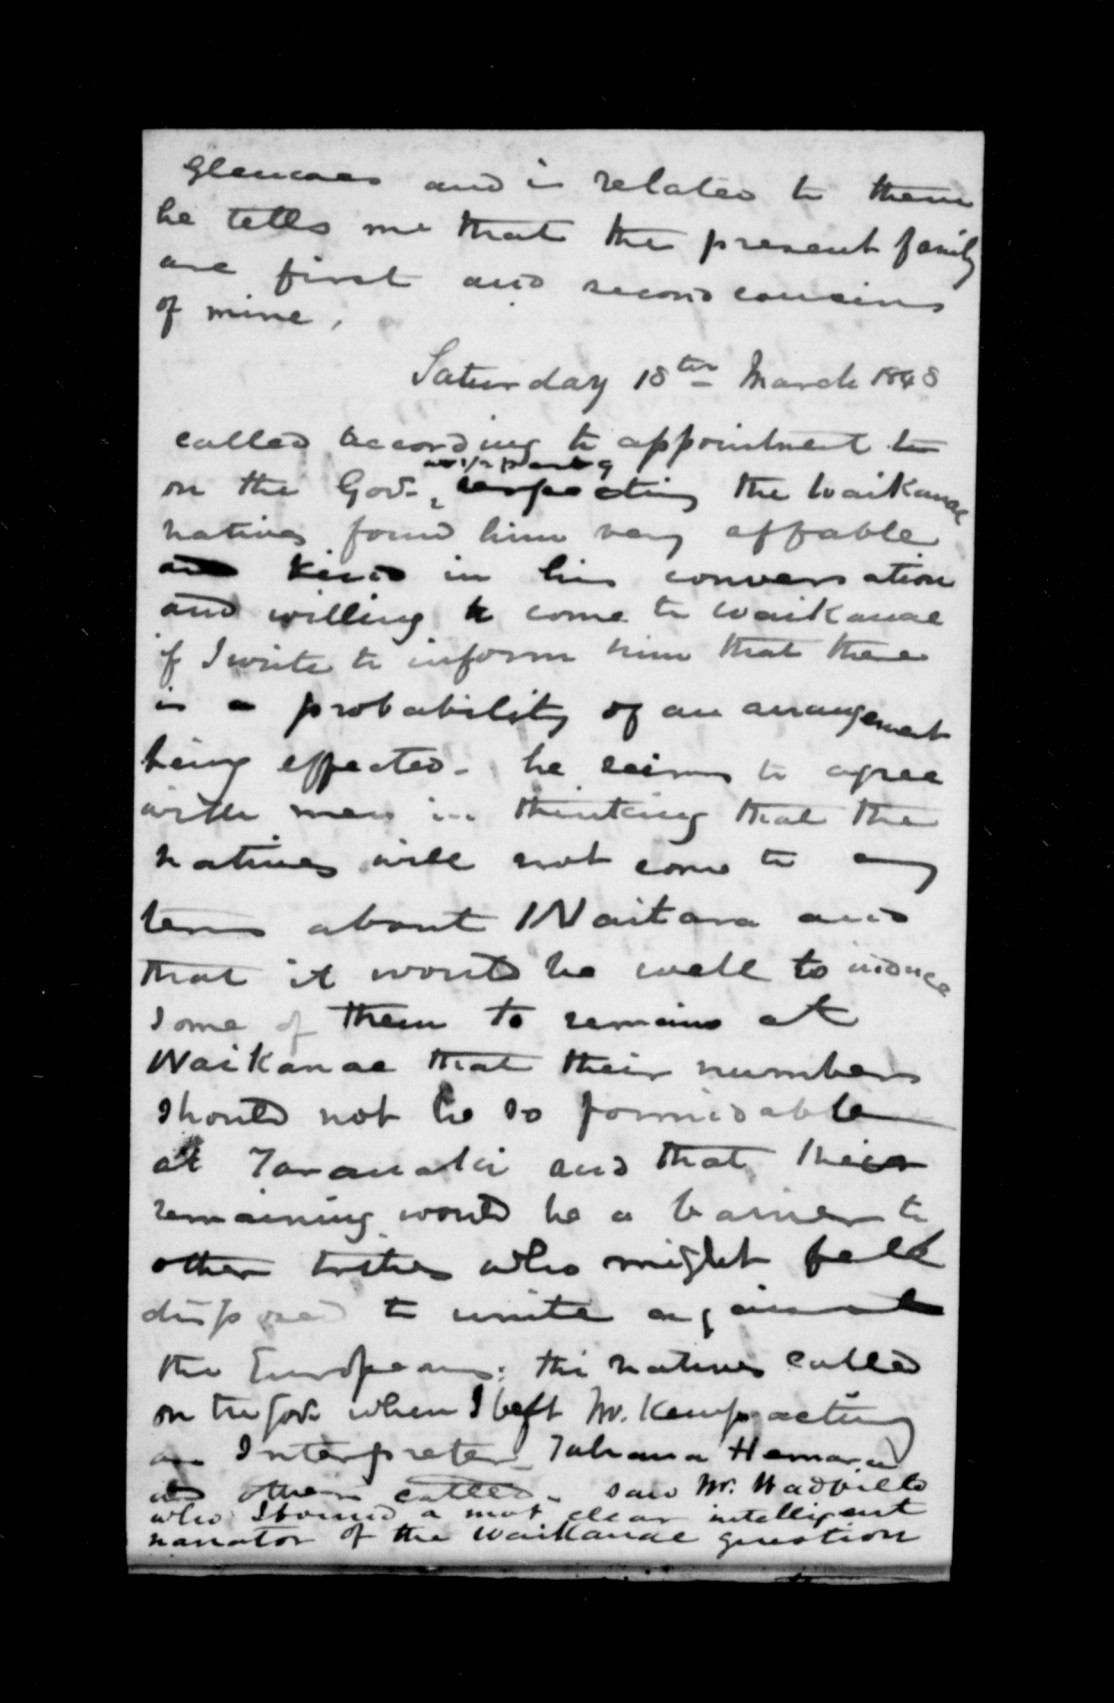 Glencoes and is related to them
he tells me that the present family
are first and second cousins
of mine,
Saturday 18th March 1848
called according to appointment to
on the Govr. respecting the Waikanae
natives found him very affable
and kind in his conversation
and willing to come to Waikanae
if I write to inform him that there
is a probability of an arrangement
being effected - he seems to agree
with men in thinking that the
natives will not come to any
terms about Waitara and
that it would be well to induce
some of them to remain at
Waikanae that their numbers
should not be so formidable
at Taranaki and that their
remaining would be a barrier to
other tribes who might feel
disposed to unite against
the Europeans: the natives called
on the Govr when I left Mr. Kemp acting
as Interpreter Tahana Hemara
and others called - saw Mr.
who I found a most clear intelligent
narrator of the Waikanae question